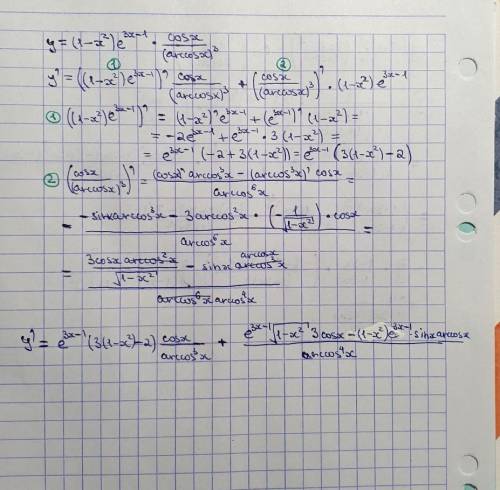 y = (1-x²)e^{3x-1} · cosx/(arcosx)³
① ②
y' = ((1-x²)e^{3x-1})' cosx/(arcosx)³ + (cosx/(arcosx)³)' · (1-x²)e^{3x-1}
① ((1-x²)e^{3x-1})' = (1-x²)'e^{3x-1} + (e^{3x-1})'(1-x²) =
= -2e^{3x-1} + e^{3x-1} · 3(1-x²) =
= e^{3x-1}(-2+3(1-x²)) = e^{3x-1}(3(1-x²)-2)
② (cosx/(arcosx)³)' = ((cosx)' arcos³x - (arcos³x)' cosx)/arcos⁶x =
= (-sinx arcos³x - 3arcos²x · (-1/√(1-x²)) · cosx)/arcos⁶x =
= (3cosx arcos²x/√(1-x²) - sinx arcos³x arcosx)/(arcos⁶x arcos⁴x)
y' = e^{3x-1}(3(1-x²)-2) cosx/arcos³x + (e^{3x-1}√(1-x²) 3cosx - (1-x²)e^{3x-1} · sinx arcosx)/arccos⁴x